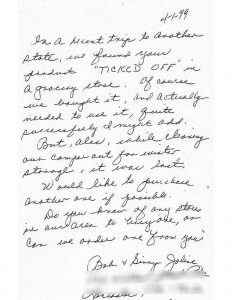 4-1-99
In a recent trip to another
state, we found your
product "TICKED OFF" in
a grocery store. Of course
we bought it, and actually
needed to use it, quite
successfully I might add.
But, also, while cleaning
our camper out for winter
storage, it was lost.
Would like to purchase
another one if possible.
Do you know of any stores
in our area to buy one, or
can we order one from you
Bob & Ginny